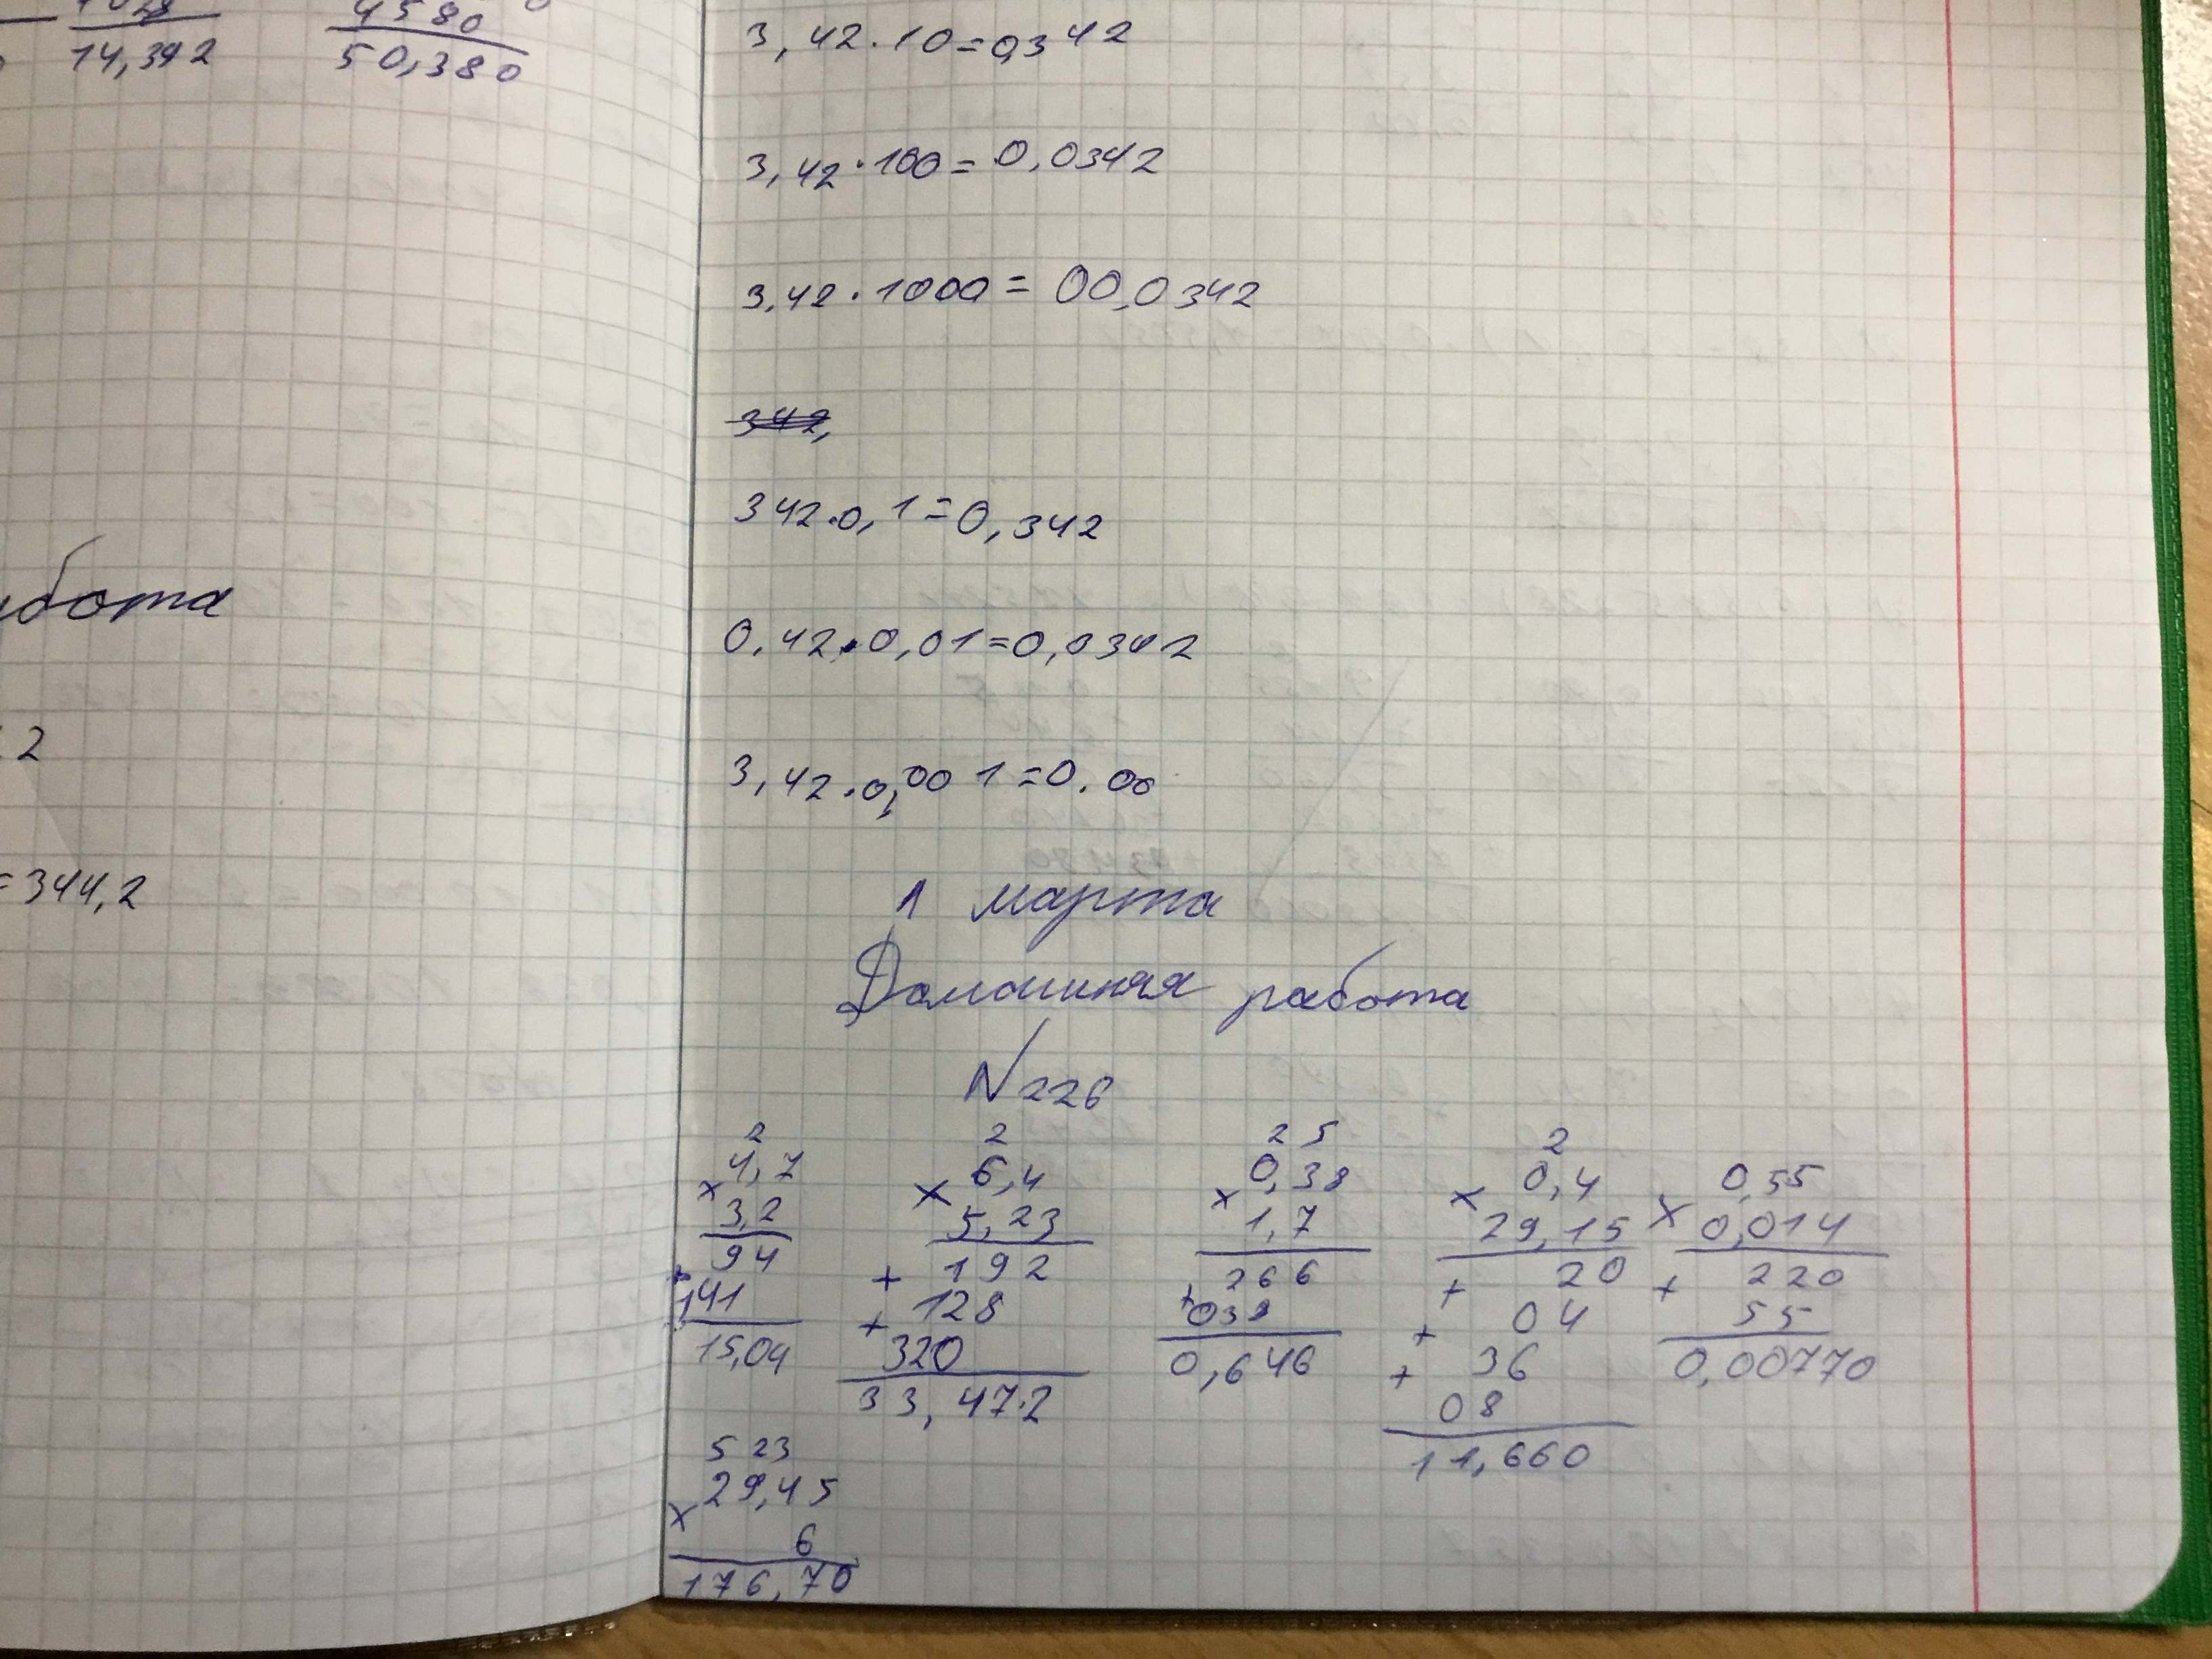 14,392 50,380
бота
2
=344,2
3,42·10=0,342
3,42·100=0,0342
3,42·1000=00,0342
342,
342·0,1=0,342
0,42·0,01=0,0342
3,42·0,001=0.00
1 марта
Домашняя работа
N226
2 2 2 5 2
× 4,7 × 6,4 × 0,38 × 0,4 × 0,55
3,2 5,23 1,7 29,15 0,014
94 + 192 266 + 20 + 220
+ 141 + 128 + 038 + 04 55
15,04 320 0,646 + 36 0,00770
33,472 08
11,660
5 23
× 29,45
6
176,70